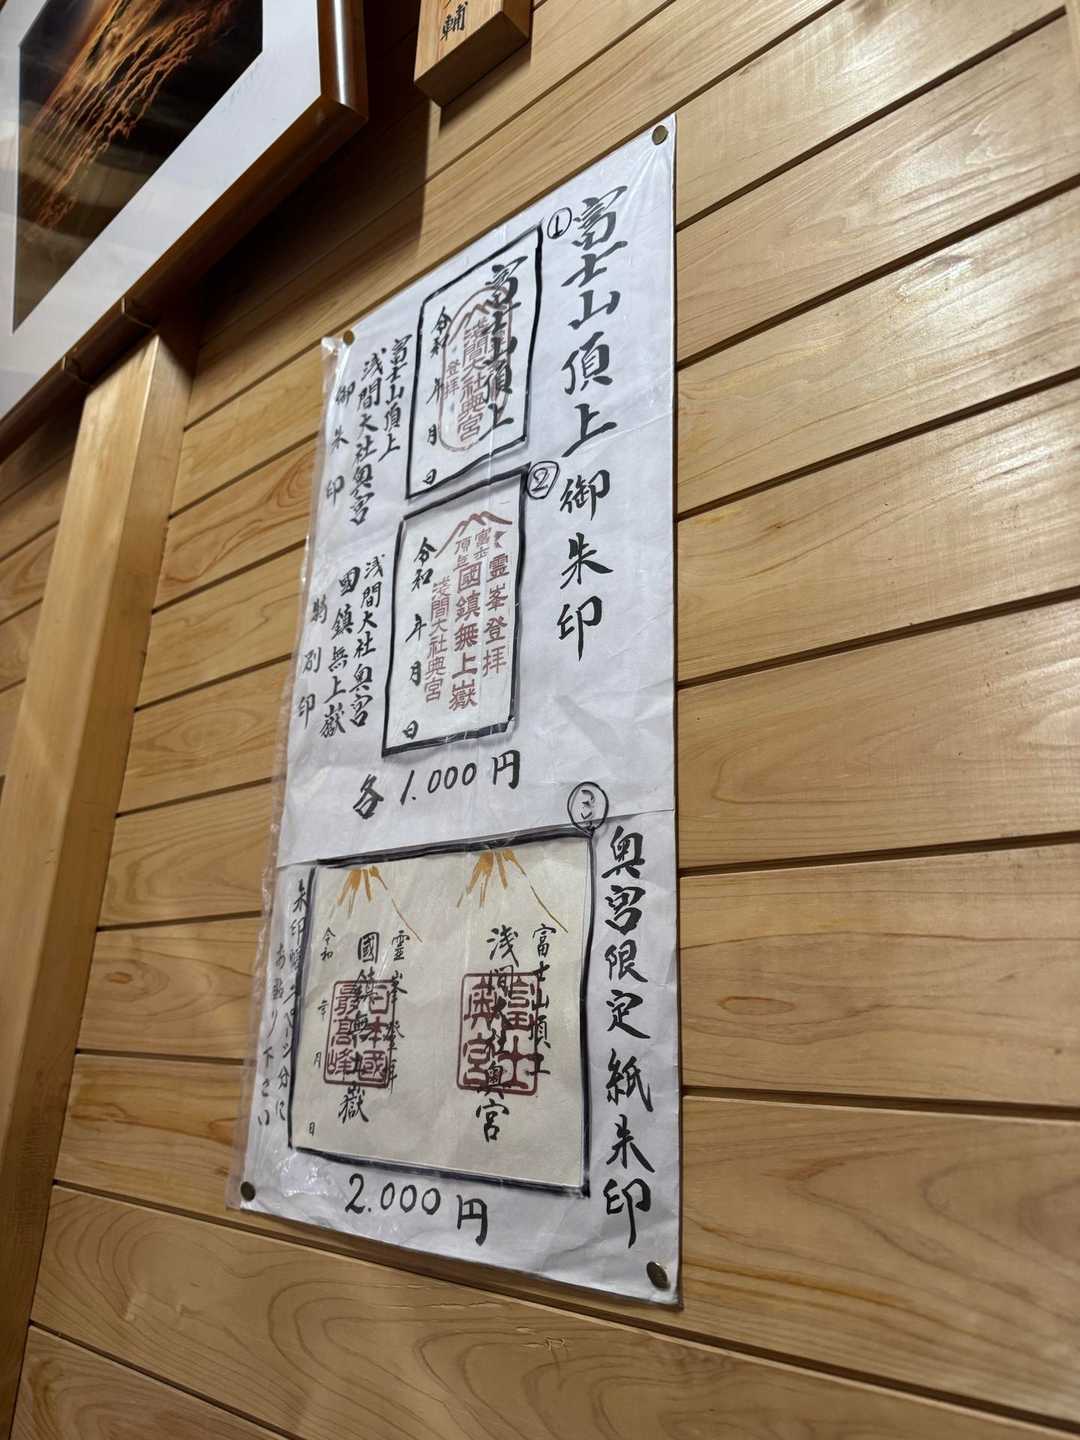 輔
①
富士山頂上御朱印
富士山頂上
浅間大社奥宮
登拝
令和 年 月 日
富士山頂上
浅間大社奥宮
御朱印
②
霊峯登拝
富士
頂上
國鎮無上嶽
浅間大社奥宮
令和 年 月 日
浅間大社奥宮
國鎮無上嶽
特別印
各 1.000円
③
奥宮限定紙朱印
富士山頂上
浅間大社奥宮
富士
奥宮
霊峯登拝
國鎮無上嶽
日本國
最高峰
令和 年 月 日
朱印帳二ページ分に
お貼り下さい
2.000円